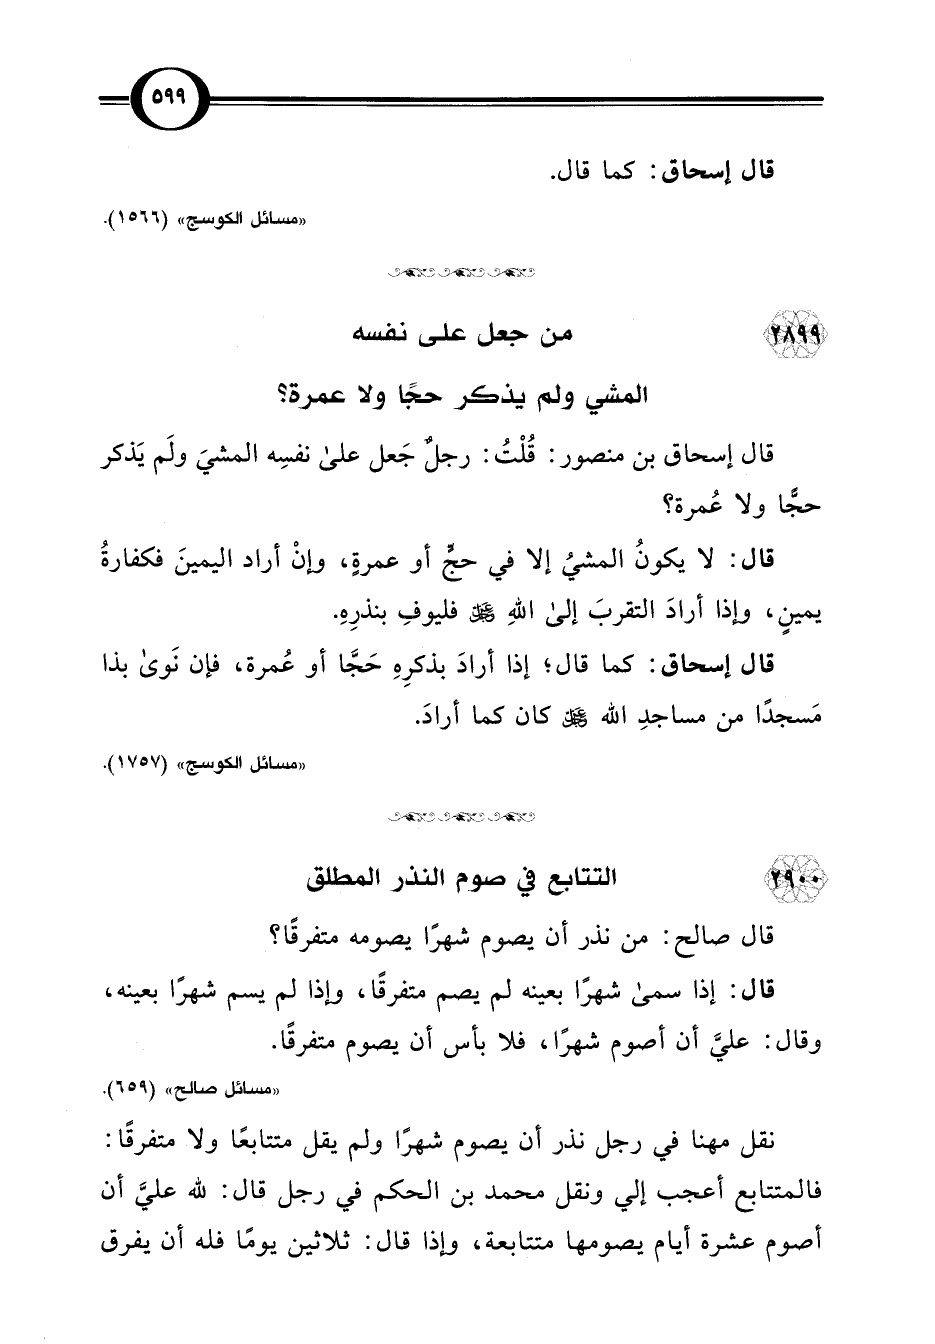 ٥٩٩
قال إسحاق: كما قال.
«مسائل الكوسج» (١٥٦٦).
٢٨٩٩
من جعل على نفسه
المشي ولم يذكر حجًا ولا عمرة؟
قال إسحاق بن منصور: قُلْتُ: رجلٌ جَعل علىٰ نفسِه المشيَ ولَم يَذكر
حجًّا ولا عُمرة؟
قال: لا يكونُ المشيُ إلا في حجٍّ أو عمرةٍ، وإنْ أراد اليمينَ فكفارةُ
يمينٍ، وإذا أرادَ التقربَ إلىٰ اللهِ ﷻ فليوفِ بنذرِهِ.
قال إسحاق: كما قال؛ إذا أرادَ بذكرِهِ حَجًّا أو عُمرة، فإن نَوىٰ بذا
مَسجدًا من مساجدِ الله ﷻ كان كما أرادَ.
«مسائل الكوسج» (١٧٥٧).
٢٩٠٠
التتابع في صوم النذر المطلق
قال صالح: من نذر أن يصوم شهرًا يصومه متفرقًا؟
قال: إذا سمىٰ شهرًا بعينه لم يصم متفرقًا، وإذا لم يسم شهرًا بعينه،
وقال: عليَّ أن أصوم شهرًا، فلا بأس أن يصوم متفرقًا.
«مسائل صالح» (٦٥٩).
نقل مهنا في رجل نذر أن يصوم شهرًا ولم يقل متتابعًا ولا متفرقًا:
فالمتتابع أعجب إلي ونقل محمد بن الحكم في رجل قال: لله عليَّ أن
أصوم عشرة أيام يصومها متتابعة، وإذا قال: ثلاثين يومًا فله أن يفرق